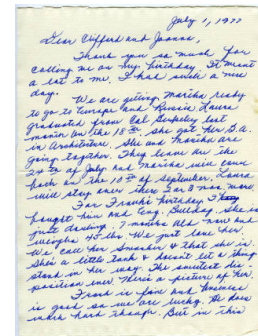 July 1, 1977
Dear Clifford and Joanne,
Thank you so much for
calling me on my birthday. It meant
a lot to me. I had such a nice
day.
We are getting Marsha ready
to go to Europe and Russia. Laura
graduated from Cal Berkeley last
month on the 18th. She got her B.A.
in Architecture. She and Marsha are
going together. They leave on the
24th of July and Marsha will come
back on the 10th of September. Laura
will stay over there 2 or 3 mos. more.
For Frank's birthday I
bought him an Eng. Bulldog. She is
just darling. 7 months old now and
weighs 45 lbs. We just love her.
We call her Smashin & that she is.
She's a little tank & doesn't let a thing
stand in her way. The sweetest
position ever. Here's a picture of her.
Frank is fine and business
is good so we are lucky. He does
work hard though. But in this